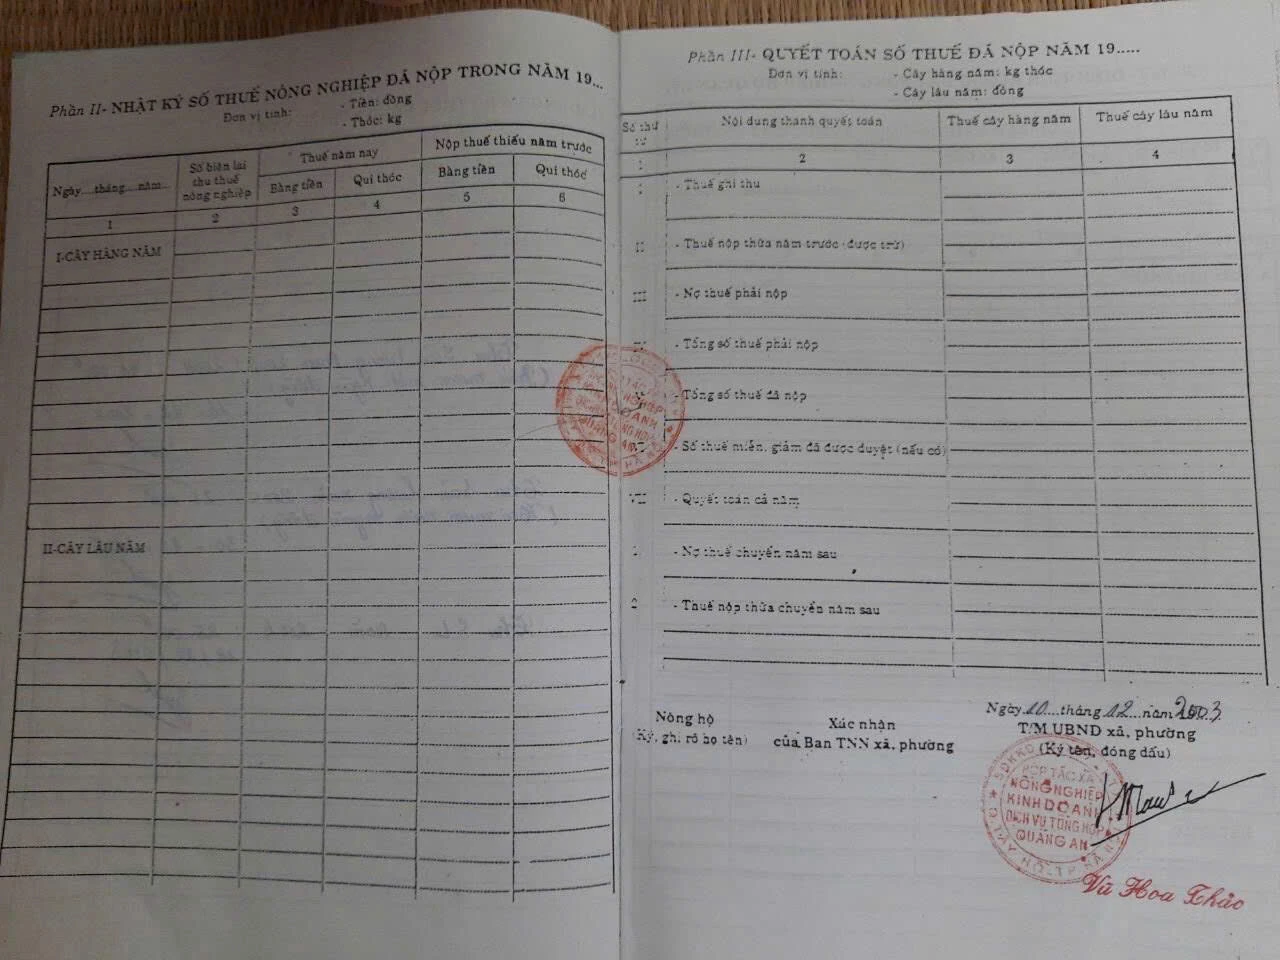 Phần II- NHẬT KÝ SỐ THUẾ NÔNG NGHIỆP ĐÃ NỘP TRONG NĂM 19...
Đơn vị tính: - Tiền: đồng
- Thóc: kg
Ngày tháng năm
Số biên lai thu thuế nông nghiệp
Thuế năm nay
Nộp thuế thiếu năm trước
Bằng tiền
Qui thóc
Bằng tiền
Qui thóc
1 2 3 4 5 6
I-CÂY HÀNG NĂM
II-CÂY LÂU NĂM
Phần III- QUYẾT TOÁN SỐ THUẾ ĐÃ NỘP NĂM 19.....
Đơn vị tính: - Cây hàng năm: kg thóc
- Cây lâu năm: đồng
Số thứ tự
Nội dung thanh quyết toán
Thuế cây hàng năm
Thuế cây lâu năm
1 2 3 4
I - Thuế ghi thu
II - Thuế nộp thừa năm trước (được trừ)
III - Nợ thuế phải nộp
- Tổng số thuế phải nộp
- Tổng số thuế đã nộp
- Số thuế miễn, giảm đã được duyệt (nếu có)
VII - Quyết toán cả năm
- Nợ thuế chuyển năm sau
2 - Thuế nộp thừa chuyển năm sau
Nông hộ
(Ký, ghi rõ họ tên)
Xác nhận
của Ban TNN xã, phường
Ngày 10 tháng 12 năm 2003
T/M UBND xã, phường
(Ký tên, đóng dấu)
HỢP TÁC XÃ
NÔNG NGHIỆP
KINH DOANH
DỊCH VỤ TỔNG HỢP
QUẢNG AN
Q. TÂY HỒ - TP HÀ NỘI
Vũ Hoa Thảo